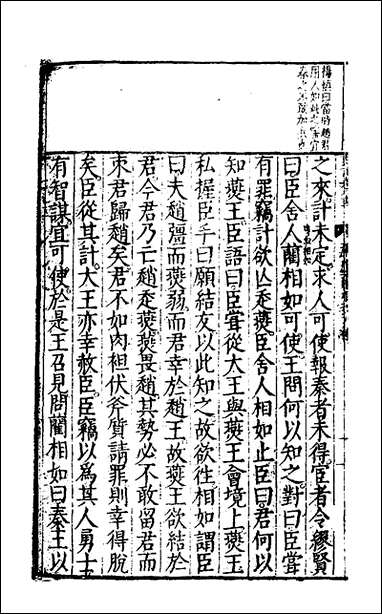 之來計未定求人可使報秦者未得宦者令繆賢
曰臣舍人藺相如可使王問何以知之對曰臣嘗
有罪竊計欲亾走燕臣舍人相如止臣曰君何以
知燕王臣語曰臣嘗從大王與燕王會境上燕王
私握臣手曰願結友以此知之故欲往相如謂臣
曰夫趙彊而燕弱而君幸於趙王故燕王欲結於
君今君乃亡趙走燕燕畏趙其勢必不敢留君而
束君歸趙矣君不如肉袒伏斧質請罪則幸得脫
矣臣從其計大王亦幸赦臣臣竊以為其人勇士
有智謀宜可使於是王召見問藺相如曰秦王以